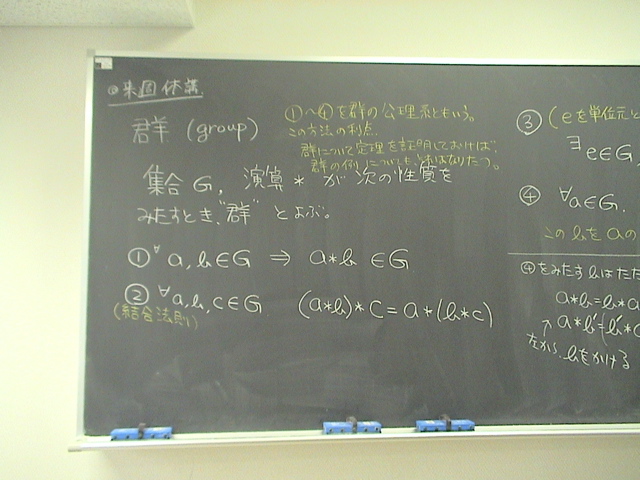 来週休講
群 (group)
①へ④を群の公理系ともいう。
この方法の利点
群について定理を証明しておけば、
群の例についても、それはなりたつ。
集合 G, 演算 * が次の性質を
みたすとき、"群" とよぶ。
① ∀a, b ∈ G ⇒ a*b ∈ G
② ∀a, b, c ∈ G (a*b)*c = a*(b*c)
(結合法則)
③ (eを単位元と
∃e∈G,
④ ∀a∈G.
この b を a の
④をみたす b はただ
a*b=b*a
↑ a*b'=b'*a
左から、bをかける